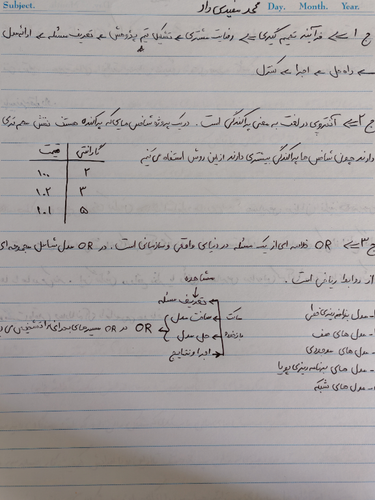 Subject. محمد سعیدی راد Day. Month. Year.
ج ۱ => فرآیند تصمیم گیری => رضایت مشتری => تشکیل تیم پژوهش => تعریف مسئله => ارائه مدل
=> راه حل => اجرا => کنترل
ج ۲ => آنتروپی در لغت به معنی پراکندگی است. در یک پروژه شاخص هایی که پراکنده هست نقش مهم تری
دارند چون شاخص ها پراکندگی بیشتری دارند از این روش استفاده می کنیم
گارانتی قیمت
۲ ۱۰۰
۳ ۱۰۲
۵ ۱۰۱
ج ۳ => OR خلاصه ای از یک مسئله در دنیای واقعی و سازمانی است. در OR مدل شامل مجموعه ای
از روابط ریاضی است.
مشاهده
تعریف مسئله
ساخت مدل
حل مدل
اجرا و نتایج
OR در OR
مدل برنامه ریزی خطی
مدل های صف
مدل های
مدل های برنامه ریزی پویا
مدل های شبکه